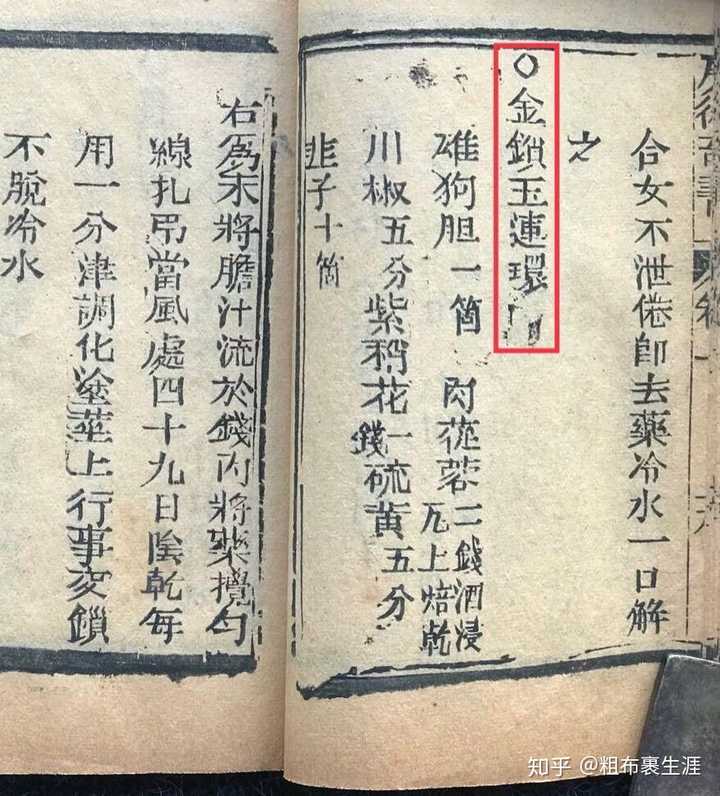 合女不泄倦即去藥冷水一口解
之
○金鎖玉連環
雄狗胆一箇 肉蓯蓉二錢酒浸瓦上焙乾
川椒五分紫稍花一錢硫黄五分
韭子十箇
右爲末將膽汁流於錢內將藥攪匀
線扎吊當風處四十九日陰乾每
用一分津調化塗莖上行事交鎖
不脫冷水
知乎 @粗布裹生涯